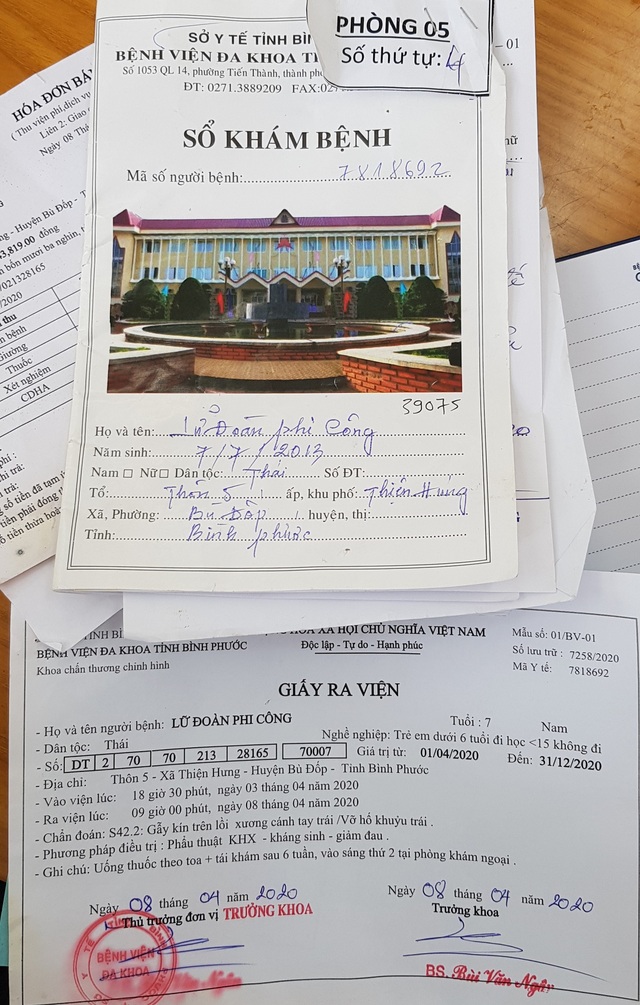 PHÒNG 05
Số thứ tự: 4
SỞ Y TẾ TỈNH BÌN
BỆNH VIỆN ĐA KHOA TỈN
Số 1053 QL 14, phường Tiến Thành, thành ph
ĐT: 0271.3889209 FAX:027
SỔ KHÁM BỆNH
Mã số người bệnh: 7818692
39075
Họ và tên: Lữ Đoàn phi Công
Năm sinh: 7/7/2013
Nam □ Nữ □ Dân tộc: Thái Số ĐT:
Tổ: Thôn 5 ấp, khu phố: Thiện Hưng
Xã, Phường: Bù Đốp huyện, thị:
Tỉnh: Bình phước
HÓA ĐƠN BÁ
( Thu viện phí,dịch vụ
Liên 2: Giao
Ngày 08 Thá
ng - Huyện Bù Đốp - T
3,819.00 đồng
n bốn mươi ba nghìn,
/021328165
/2020
i thu
n bệnh
Giường
Thuốc
Xét nghiệm
CDHA
- 01
HÒA XÃ HỘI CHỦ NGHĨA VIỆT NAM
Mẫu số: 01/BV-01
BỆNH VIỆN ĐA KHOA TỈNH BÌNH PHƯỚC
Độc lập - Tự do - Hạnh phúc
Số lưu trữ : 7258/2020
Khoa chấn thương chỉnh hình
Mã Y tế: 7818692
GIẤY RA VIỆN
- Họ và tên người bệnh: LỮ ĐOÀN PHI CÔNG Tuổi : 7 Nam
- Dân tộc: Thái Nghề nghiệp: Trẻ em dưới 6 tuổi đi học <15 không đi
- Số: DT 2 70 70 213 28165 70007 Giá trị từ: 01/04/2020 Đến: 31/12/2020
- Địa chỉ: Thôn 5 - Xã Thiện Hưng - Huyện Bù Đốp - Tỉnh Bình Phước
- Vào viện lúc: 18 giờ 30 phút, ngày 03 tháng 04 năm 2020
- Ra viện lúc: 09 giờ 00 phút, ngày 08 tháng 04 năm 2020
- Chẩn đoán: S42.2: Gẫy kín trên lồi xương cánh tay trái /Vỡ hố khuỷu trái .
- Phương pháp điều trị : Phẫu thuật KHX - kháng sinh - giảm đau .
- Ghi chú: Uống thuốc theo toa + tái khám sau 6 tuần, vào sáng thứ 2 tại phòng khám ngoại .
Ngày 08 tháng 04 năm 2020
Thủ trưởng đơn vị TRƯỞNG KHOA
BỆNH VIỆN
ĐA KHOA
Ngày 08 tháng 04 năm 2020
Trưởng khoa
BS. Bùi Văn Ngâ